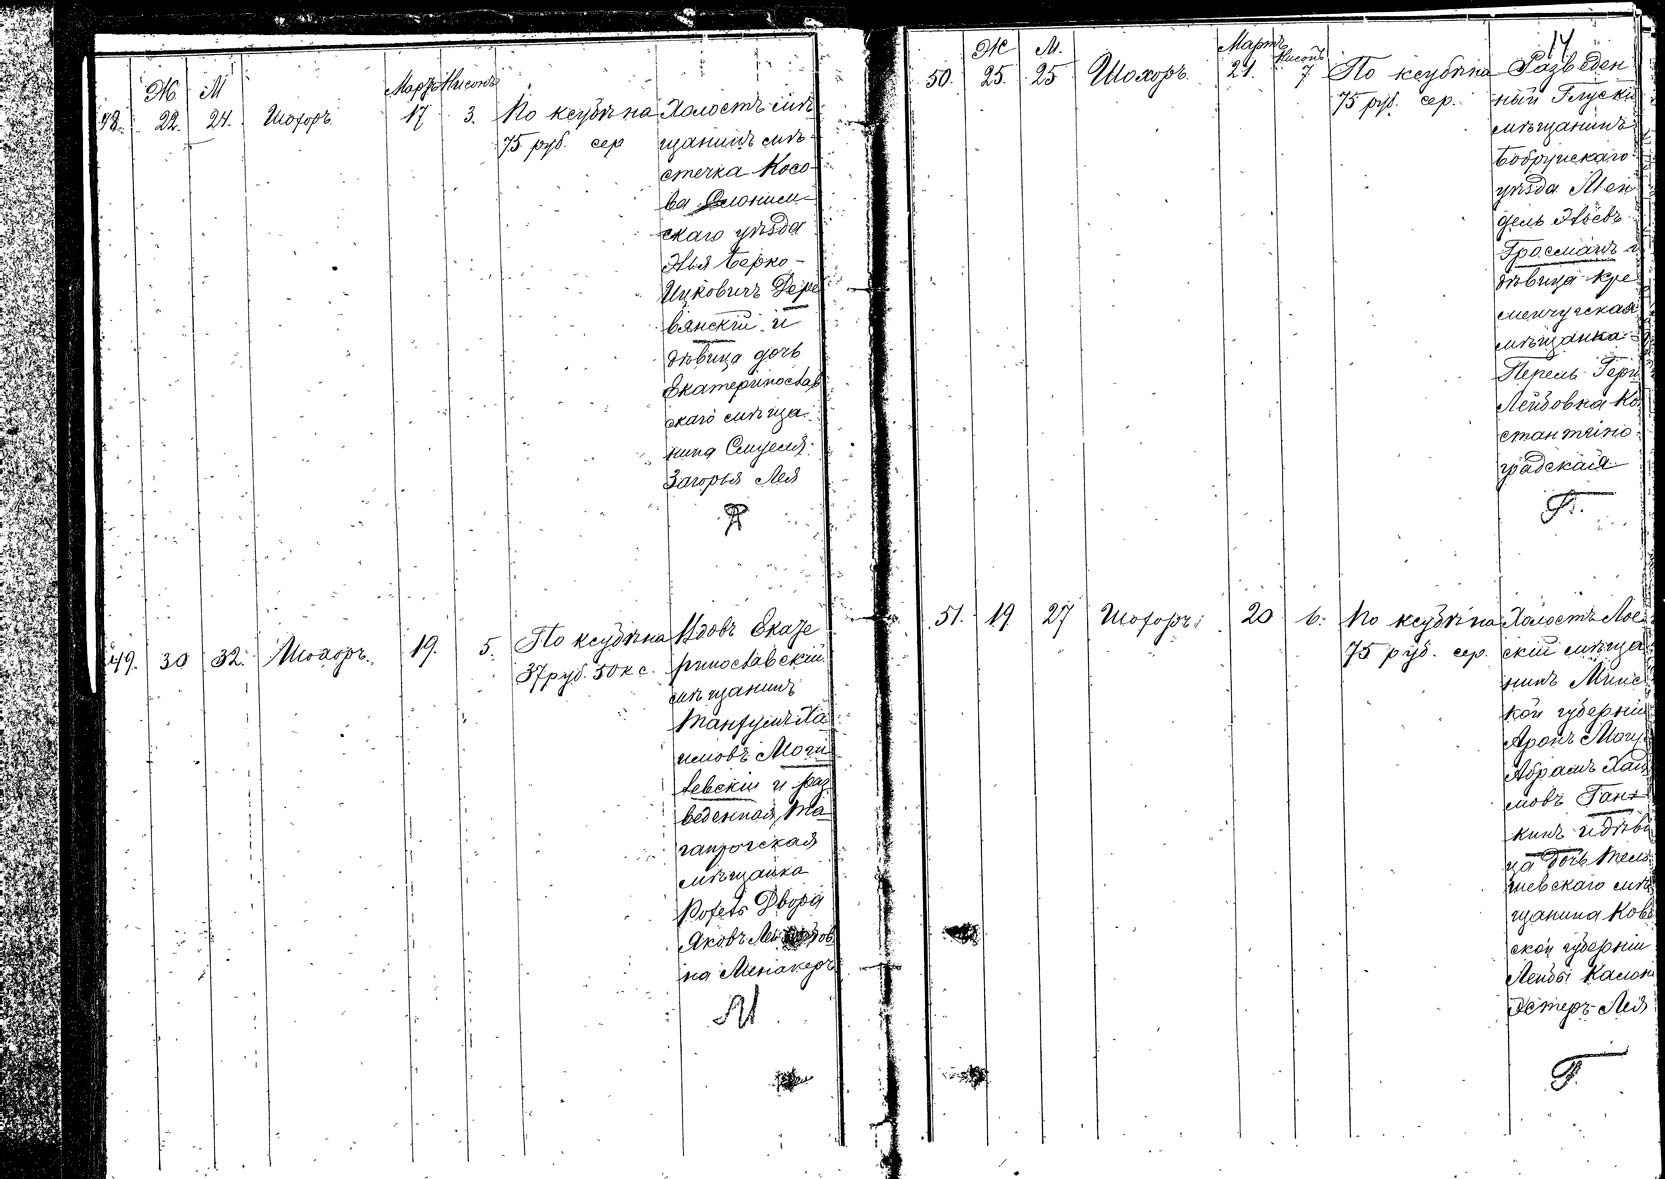 Ж М Мартъ Нисонъ
48. 22. 24. Шохоръ. 17 3. По ксубѣ на Холостъ мѣ-
75 руб. сер щанинъ мѣ-
стечка Косо-
ва Слоним-
скаго уѣзда
Элья Берко-
Ицковичъ Дере
вянскій и
дѣвица дочь
Екатеринослав
скаго мѣща
нина Смуеля
Загорья Лея
Д
49. 30 32. Шохоръ. 19. 5. По ксубѣ на Вдовъ Екате
37 руб. 50 к с. ринославскій
мѣщанинъ
Танхумъ Ха
имовъ Моги
левскій и раз
веденная Та
ганрогская
мѣщанка
Двора
Яковъ
на Менакеръ
М
14
Ж М. Мартъ Нисонъ
50. 25. 25 Шохоръ. 21. 7 По ксубѣ на Разведен
75 руб. сер. ный Глускій
мѣщанинъ
Бобруйскаго
уѣзда Мен
дель Эвьевъ
Гросманъ и
дѣвица кре
менчугская
мѣщанка
Перель Герш
Лейбовна Ко
стантино
градская
Г.
51. 19 27 Шохоръ. 20 6. По ксубѣ на Холостъ
75 руб. сер. скій мѣща
нинъ Минс
кой губерніи
Аронъ
Абрамъ Хаи
мовъ Ган
кинъ и дѣви
ца дочь Тель
шевскаго мѣ
щанина Ков
ской губерніи
Лейбы Калон
Эстеръ-Лея
Г.